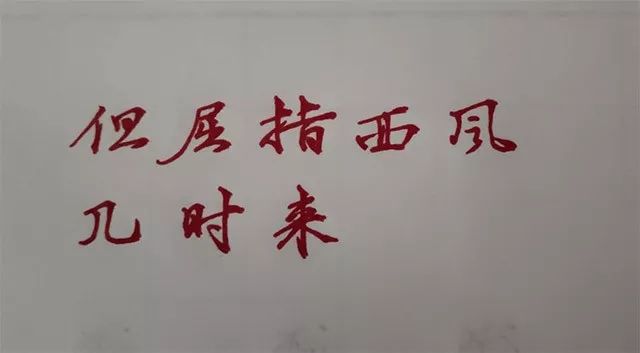 但屈指西风
几时来